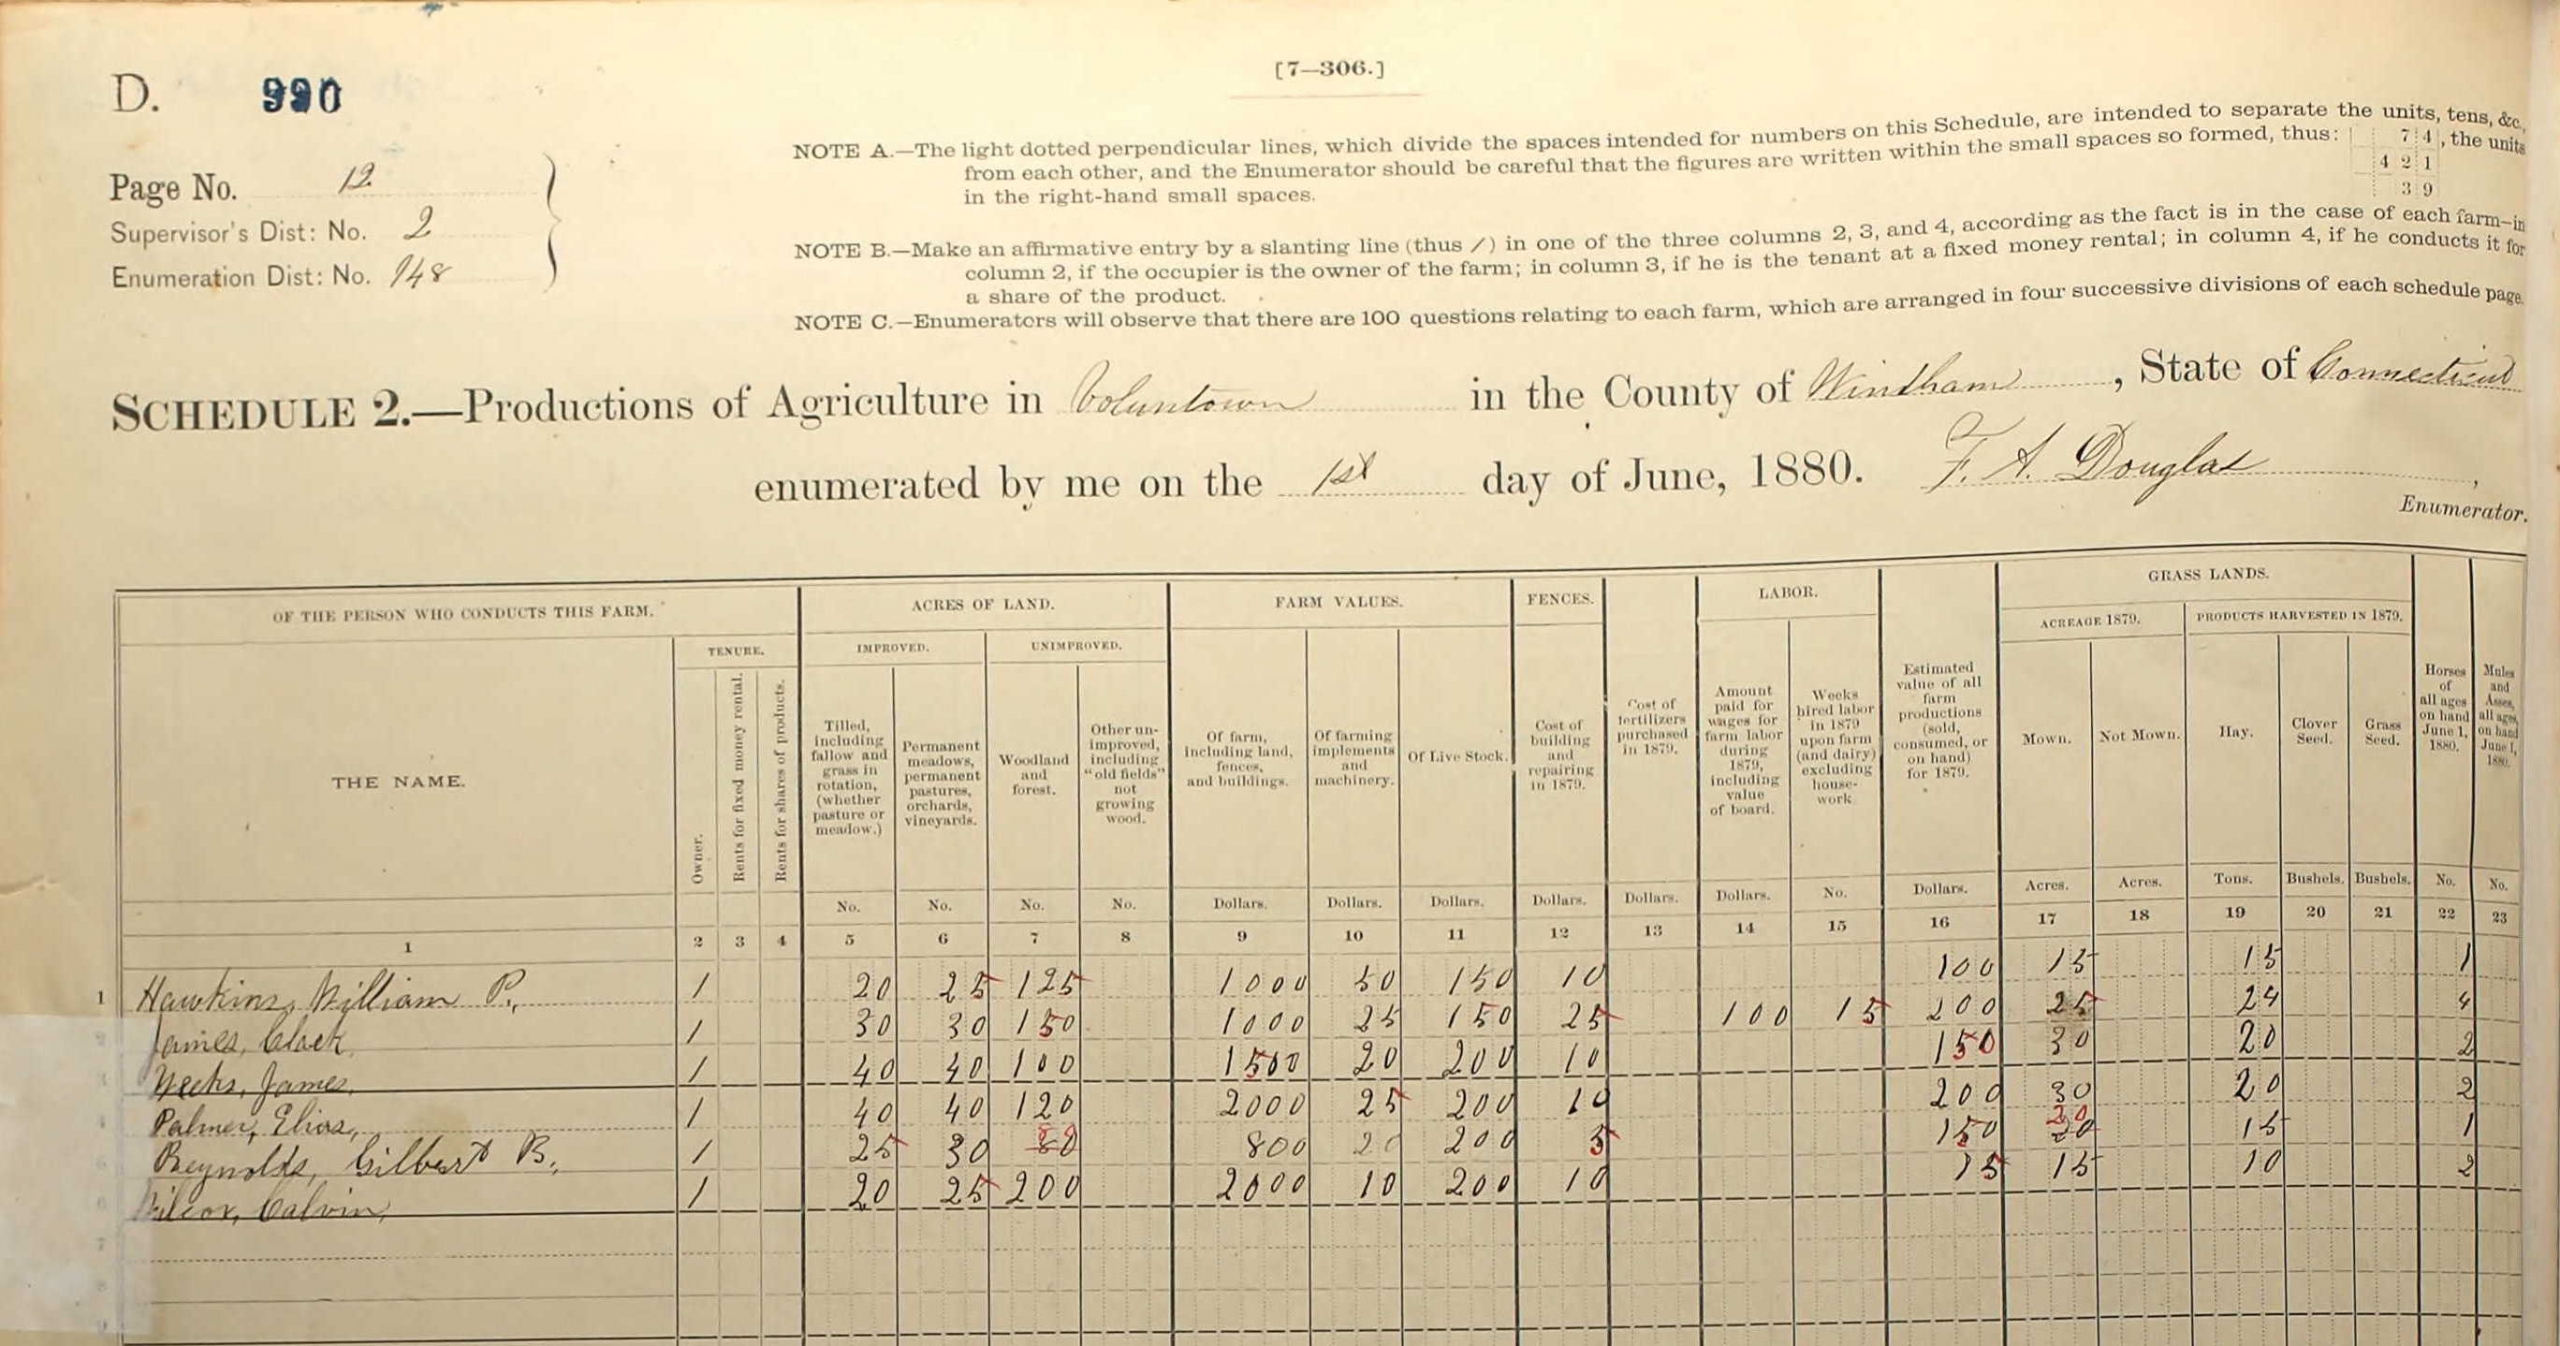 D. 990
[7—306.]
Page No. 12
Supervisor's Dist: No. 2
Enumeration Dist: No. 148
NOTE A.—The light dotted perpendicular lines, which divide the spaces intended for numbers on this Schedule, are intended to separate the units, tens, &c.,
from each other, and the Enumerator should be careful that the figures are written within the small spaces so formed, thus: 74, the units
in the right-hand small spaces. 421
39
NOTE B.—Make an affirmative entry by a slanting line (thus /) in one of the three columns 2, 3, and 4, according as the fact is in the case of each farm—in
column 2, if the occupier is the owner of the farm; in column 3, if he is the tenant at a fixed money rental; in column 4, if he conducts it for
a share of the product.
NOTE C.—Enumerators will observe that there are 100 questions relating to each farm, which are arranged in four successive divisions of each schedule page.
SCHEDULE 2.—Productions of Agriculture in Voluntown in the County of Windham, State of Connecticut
enumerated by me on the 1st day of June, 1880. F. A. Douglas,
Enumerator.
OF THE PERSON WHO CONDUCTS THIS FARM.
THE NAME.
1
TENURE.
Owner.
2
Rents for fixed money rental.
3
Rents for shares of products.
4
ACRES OF LAND.
IMPROVED.
Tilled,
including
fallow and
grass in
rotation,
(whether
pasture or
meadow.)
No.
5
Permanent
meadows,
permanent
pastures,
orchards,
vineyards.
No.
6
UNIMPROVED.
Woodland
and
forest.
No.
7
Other un-
improved,
including
"old fields"
not
growing
wood.
No.
8
FARM VALUES.
Of farm,
including land,
fences,
and buildings.
Dollars.
9
Of farming
implements
and
machinery.
Dollars.
10
Of Live Stock.
Dollars.
11
FENCES.
Cost of
building
and
repairing
in 1879.
Dollars.
12
Cost of
fertilizers
purchased
in 1879.
Dollars.
13
LABOR.
Amount
paid for
wages for
farm labor
during
1879,
including
value
of board.
Dollars.
14
Weeks
hired labor
in 1879
upon farm
(and dairy)
excluding
house-
work
No.
15
Estimated
value of all
farm
productions
(sold,
consumed, or
on hand)
for 1879.
Dollars.
16
GRASS LANDS.
ACREAGE 1879.
Mown.
Acres.
17
Not Mown.
Acres.
18
PRODUCTS HARVESTED IN 1879.
Hay.
Tons.
19
Clover
Seed.
Bushels.
20
Grass
Seed.
Bushels.
21
Horses
of
all ages
on hand
June 1,
1880.
No.
22
Mules
and
Asses,
all ages,
on hand
June 1,
1880.
No.
23
1 Hawkins, William P., / 20 25 125 1000 50 150 10 100 15 15 1
James, Clark / 30 30 150 1000 25 150 25 100 15 200 25 24 4
James, / 40 40 100 1500 20 200 10 150 30 20 2
Palmer, Elias, / 40 40 120 2000 25 200 10 200 30 20 2
Reynolds, Gilbert B. / 25 30 800 20 200 5 150 20 15 1
Wilcox, Calvin, / 20 25 200 2000 10 200 10 75 15 10 2
7
8
9